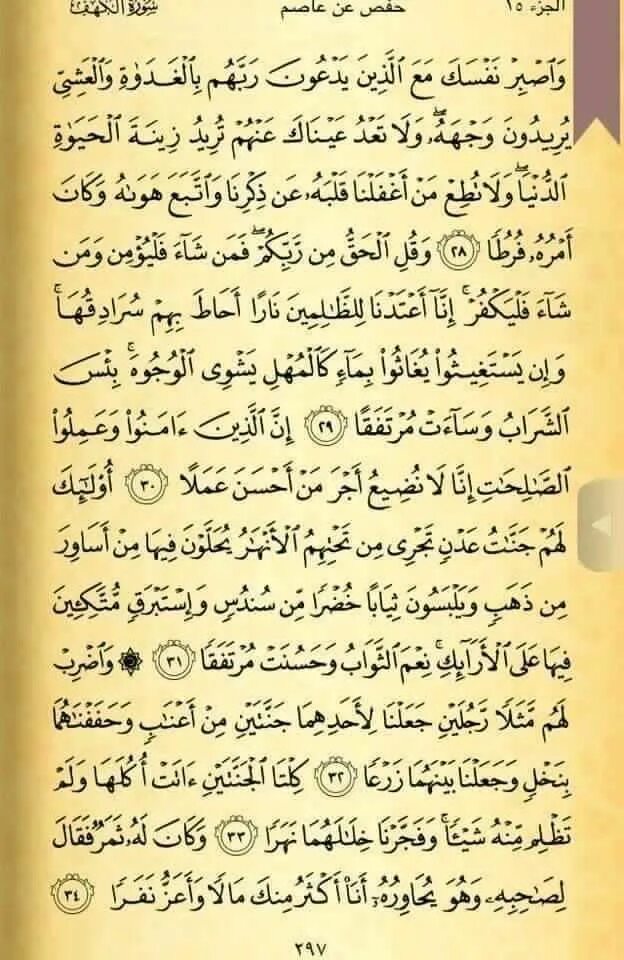 الجزء ١٥ حفص عن عاصم سورة الكهف
وَٱصۡبِرۡ نَفۡسَكَ مَعَ ٱلَّذِينَ يَدۡعُونَ رَبَّهُم بِٱلۡغَدَوٰةِ وَٱلۡعَشِيِّ
يُرِيدُونَ وَجۡهَهُۥۖ وَلَا تَعۡدُ عَيۡنَاكَ عَنۡهُمۡ تُرِيدُ زِينَةَ ٱلۡحَيَوٰةِ
ٱلدُّنۡيَاۖ وَلَا تُطِعۡ مَنۡ أَغۡفَلۡنَا قَلۡبَهُۥ عَن ذِكۡرِنَا وَٱتَّبَعَ هَوَىٰهُ وَكَانَ
أَمۡرُهُۥ فُرُطٗا ٢٨ وَقُلِ ٱلۡحَقُّ مِن رَّبِّكُمۡۖ فَمَن شَآءَ فَلۡيُؤۡمِن وَمَن
شَآءَ فَلۡيَكۡفُرۡۚ إِنَّآ أَعۡتَدۡنَا لِلظَّٰلِمِينَ نَارًا أَحَاطَ بِهِمۡ سُرَادِقُهَاۚ
وَإِن يَسۡتَغِيثُواْ يُغَاثُواْ بِمَآءٖ كَٱلۡمُهۡلِ يَشۡوِي ٱلۡوُجُوهَۚ بِئۡسَ
ٱلشَّرَابُ وَسَآءَتۡ مُرۡتَفَقًا ٢٩ إِنَّ ٱلَّذِينَ ءَامَنُواْ وَعَمِلُواْ
ٱلصَّٰلِحَٰتِ إِنَّا لَا نُضِيعُ أَجۡرَ مَنۡ أَحۡسَنَ عَمَلًا ٣٠ أُوْلَٰٓئِكَ
لَهُمۡ جَنَّٰتُ عَدۡنٖ تَجۡرِي مِن تَحۡتِهِمُ ٱلۡأَنۡهَٰرُ يُحَلَّوۡنَ فِيهَا مِنۡ أَسَاوِرَ
مِن ذَهَبٖ وَيَلۡبَسُونَ ثِيَابًا خُضۡرٗا مِّن سُندُسٖ وَإِسۡتَبۡرَقٖ مُّتَّكِـِٔينَ
فِيهَا عَلَى ٱلۡأَرَآئِكِۚ نِعۡمَ ٱلثَّوَابُ وَحَسُنَتۡ مُرۡتَفَقٗا ٣١ ۞ وَٱضۡرِبۡ
لَهُم مَّثَلٗا رَّجُلَيۡنِ جَعَلۡنَا لِأَحَدِهِمَا جَنَّتَيۡنِ مِنۡ أَعۡنَٰبٖ وَحَفَفۡنَٰهُمَا
بِنَخۡلٖ وَجَعَلۡنَا بَيۡنَهُمَا زَرۡعٗا ٣٢ كِلۡتَا ٱلۡجَنَّتَيۡنِ ءَاتَتۡ أُكُلَهَا وَلَمۡ
تَظۡلِم مِّنۡهُ شَيۡـٔٗاۚ وَفَجَّرۡنَا خِلَٰلَهُمَا نَهَرٗا ٣٣ وَكَانَ لَهُۥ ثَمَرٞ فَقَالَ
لِصَٰحِبِهِۦ وَهُوَ يُحَاوِرُهُۥٓ أَنَا۠ أَكۡثَرُ مِنكَ مَالٗا وَأَعَزُّ نَفَرٗا ٣٤
٢٩٧